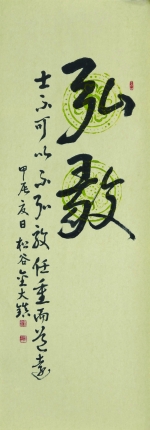 弘毅
士不可以不弘毅任重而道遠
甲辰夏日 松谷 金大鎮